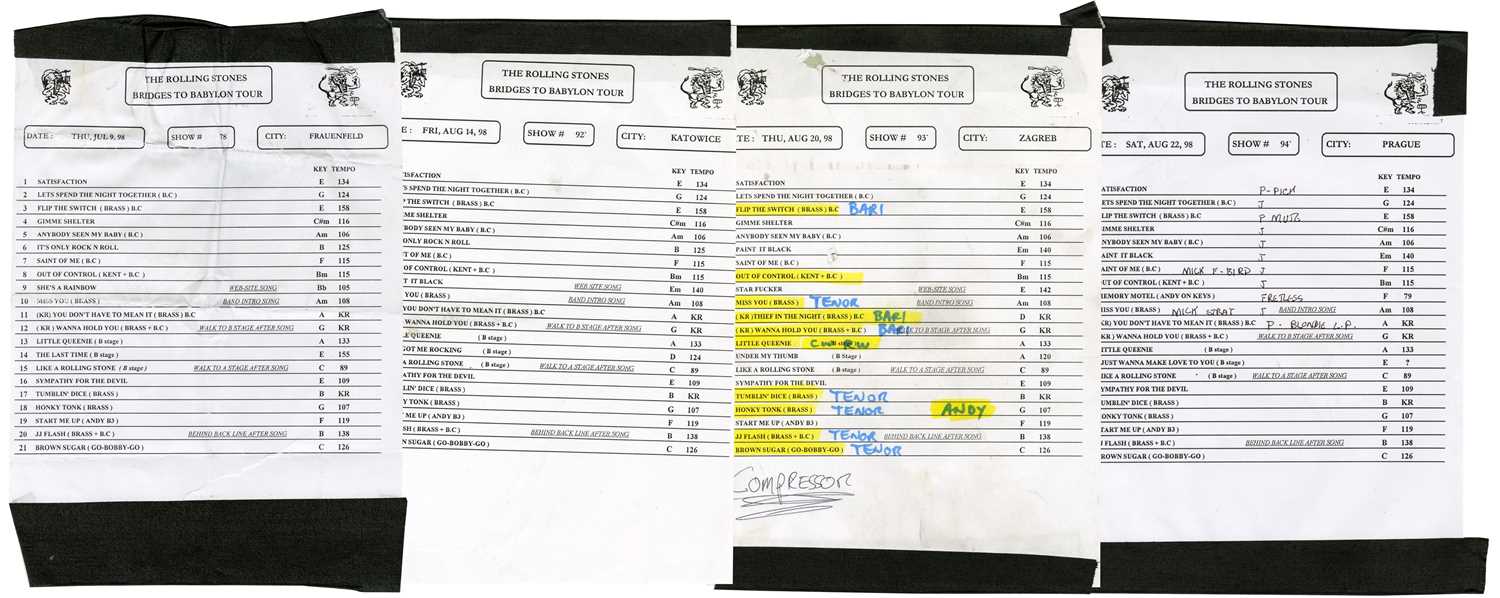 THE ROLLING STONES
BRIDGES TO BABYLON TOUR
DATE : THU, JUL 9, 98 SHOW # 78 CITY: FRAUENFELD
KEY TEMPO
1 SATISFACTION E 134
2 LETS SPEND THE NIGHT TOGETHER ( B.C ) G 124
3 FLIP THE SWITCH ( BRASS ) B.C E 158
4 GIMME SHELTER C#m 116
5 ANYBODY SEEN MY BABY ( B.C ) Am 106
6 IT'S ONLY ROCK N ROLL B 125
7 SAINT OF ME ( B.C ) F 115
8 OUT OF CONTROL ( KENT + B.C ) Bm 115
9 SHE'S A RAINBOW WEB-SITE SONG Bb 105
10 MISS YOU ( BRASS ) BAND INTRO SONG Am 108
11 (KR) YOU DON'T HAVE TO MEAN IT ( BRASS ) B.C A KR
12 ( KR ) WANNA HOLD YOU ( BRASS + B.C ) WALK TO B STAGE AFTER SONG G KR
13 LITTLE QUEENIE ( B stage ) A 133
14 THE LAST TIME ( B stage ) E 155
15 LIKE A ROLLING STONE ( B stage ) WALK TO A STAGE AFTER SONG C 89
16 SYMPATHY FOR THE DEVIL E 109
17 TUMBLIN' DICE ( BRASS ) B KR
18 HONKY TONK ( BRASS ) G 107
19 START ME UP ( ANDY BJ ) F 119
20 JJ FLASH ( BRASS + B.C ) BEHIND BACK LINE AFTER SONG B 138
21 BROWN SUGAR ( GO-BOBBY-GO ) C 126
THE ROLLING STONES
BRIDGES TO BABYLON TOUR
E : FRI, AUG 14, 98 SHOW # 92' CITY: KATOWICE
KEY TEMPO
E 134
S SPEND THE NIGHT TOGETHER ( B.C ) G 124
THE SWITCH ( BRASS ) B.C E 158
ME SHELTER C#m 116
BODY SEEN MY BABY ( B.C ) Am 106
ONLY ROCK N ROLL B 125
T OF ME ( B.C ) F 115
OF CONTROL ( KENT + B.C ) Bm 115
T IT BLACK WEB SITE SONG Em 140
YOU ( BRASS ) BAND INTRO SONG Am 108
YOU DON'T HAVE TO MEAN IT ( BRASS ) B.C A KR
WANNA HOLD YOU ( BRASS + B.C ) WALK TO B STAGE AFTER SONG G KR
E QUEENIE ( B stage ) A 133
GOT ME ROCKING ( B stage ) D 124
A ROLLING STONE ( B stage ) WALK TO A STAGE AFTER SONG C 89
PATHY FOR THE DEVIL E 109
BLIN' DICE ( BRASS ) B KR
Y TONK ( BRASS ) G 107
ME UP ( ANDY BJ ) F 119
SH ( BRASS + B.C ) BEHIND BACK LINE AFTER SONG B 138
WN SUGAR ( GO-BOBBY-GO ) C 126
THE ROLLING STONES
BRIDGES TO BABYLON TOUR
TE : THU, AUG 20, 98 SHOW # 93' CITY: ZAGREB
KEY TEMPO
SATISFACTION E 134
LETS SPEND THE NIGHT TOGETHER ( B.C ) G 124
FLIP THE SWITCH ( BRASS ) B.C BARI E 158
GIMME SHELTER C#m 116
ANYBODY SEEN MY BABY ( B.C ) Am 106
PAINT IT BLACK Em 140
SAINT OF ME ( B.C ) F 115
OUT OF CONTROL ( KENT + B.C ) Bm 115
STAR FUCKER WEB-SITE SONG E 142
MISS YOU ( BRASS ) TENOR BAND INTRO SONG Am 108
( KR )THIEF IN THE NIGHT ( BRASS ) B.C BARI D KR
( KR ) WANNA HOLD YOU ( BRASS + B.C ) BARI WALK TO B STAGE AFTER SONG G KR
LITTLE QUEENIE ( B stage ) A 133
UNDER MY THUMB ( B Stage ) A 120
LIKE A ROLLING STONE ( B stage ) WALK TO A STAGE AFTER SONG C 89
SYMPATHY FOR THE DEVIL E 109
TUMBLIN' DICE ( BRASS ) TENOR B KR
HONKY TONK ( BRASS ) TENOR ANDY G 107
START ME UP ( ANDY BJ ) F 119
JJ FLASH ( BRASS + B.C ) TENOR BEHIND BACK LINE AFTER SONG B 138
BROWN SUGAR ( GO-BOBBY-GO ) TENOR C 126
COMPRESSOR
THE ROLLING STONES
BRIDGES TO BABYLON TOUR
TE : SAT, AUG 22, 98 SHOW # 94' CITY: PRAGUE
KEY TEMPO
ATISFACTION P-PICK E 134
LETS SPEND THE NIGHT TOGETHER ( B.C ) J G 124
FLIP THE SWITCH ( BRASS ) B.C P MUTE E 158
GIMME SHELTER J C#m 116
ANYBODY SEEN MY BABY ( B.C ) J Am 106
AINT IT BLACK J Em 140
SAINT OF ME ( B.C ) MICK F-BIRD J F 115
OUT OF CONTROL ( KENT + B.C ) J Bm 115
MEMORY MOTEL ( ANDY ON KEYS ) FRETLESS F 79
MISS YOU ( BRASS ) MICK STRAT J BAND INTRO SONG Am 108
KR) YOU DON'T HAVE TO MEAN IT ( BRASS ) B.C P - BLONDE L.P. A KR
KR ) WANNA HOLD YOU ( BRASS + B.C ) WALK TO B STAGE AFTER SONG G KR
LITTLE QUEENIE ( B stage ) A 133
JUST WANNA MAKE LOVE TO YOU ( B stage ) E ?
LIKE A ROLLING STONE ( B stage ) WALK TO A STAGE AFTER SONG C 89
SYMPATHY FOR THE DEVIL E 109
TUMBLIN' DICE ( BRASS ) B KR
HONKY TONK ( BRASS ) G 107
START ME UP ( ANDY BJ ) F 119
J FLASH ( BRASS + B.C ) BEHIND BACK LINE AFTER SONG B 138
ROWN SUGAR ( GO-BOBBY-GO ) C 126